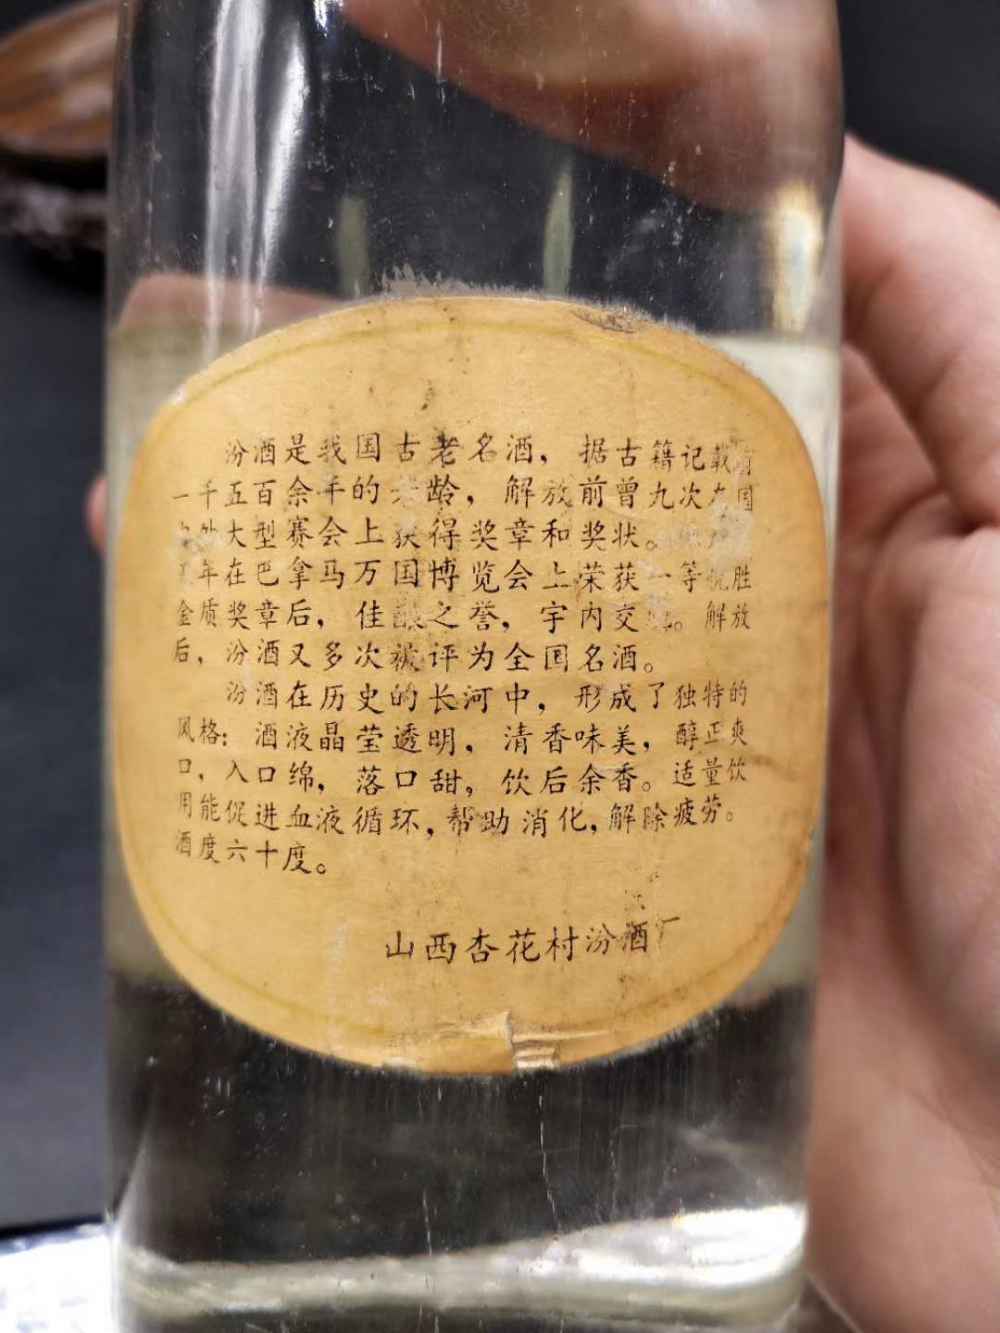 汾酒是我国古老名酒，据古籍记载有
一千五百余年的老龄，解放前曾九次在国
大型赛会上获得奖章和奖状。
年在巴拿马万国博览会上荣获一等优胜
金质奖章后，佳酿之誉，宇内交。解放
后，汾酒又多次被评为全国名酒。
汾酒在历史的长河中，形成了独特的
风格：酒液晶莹透明，清香味美，醇正爽
口，入口绵，落口甜，饮后余香。适量饮
用能促进血液循环，帮助消化，解除疲劳。
酒度六十度。
山西杏花村汾酒厂